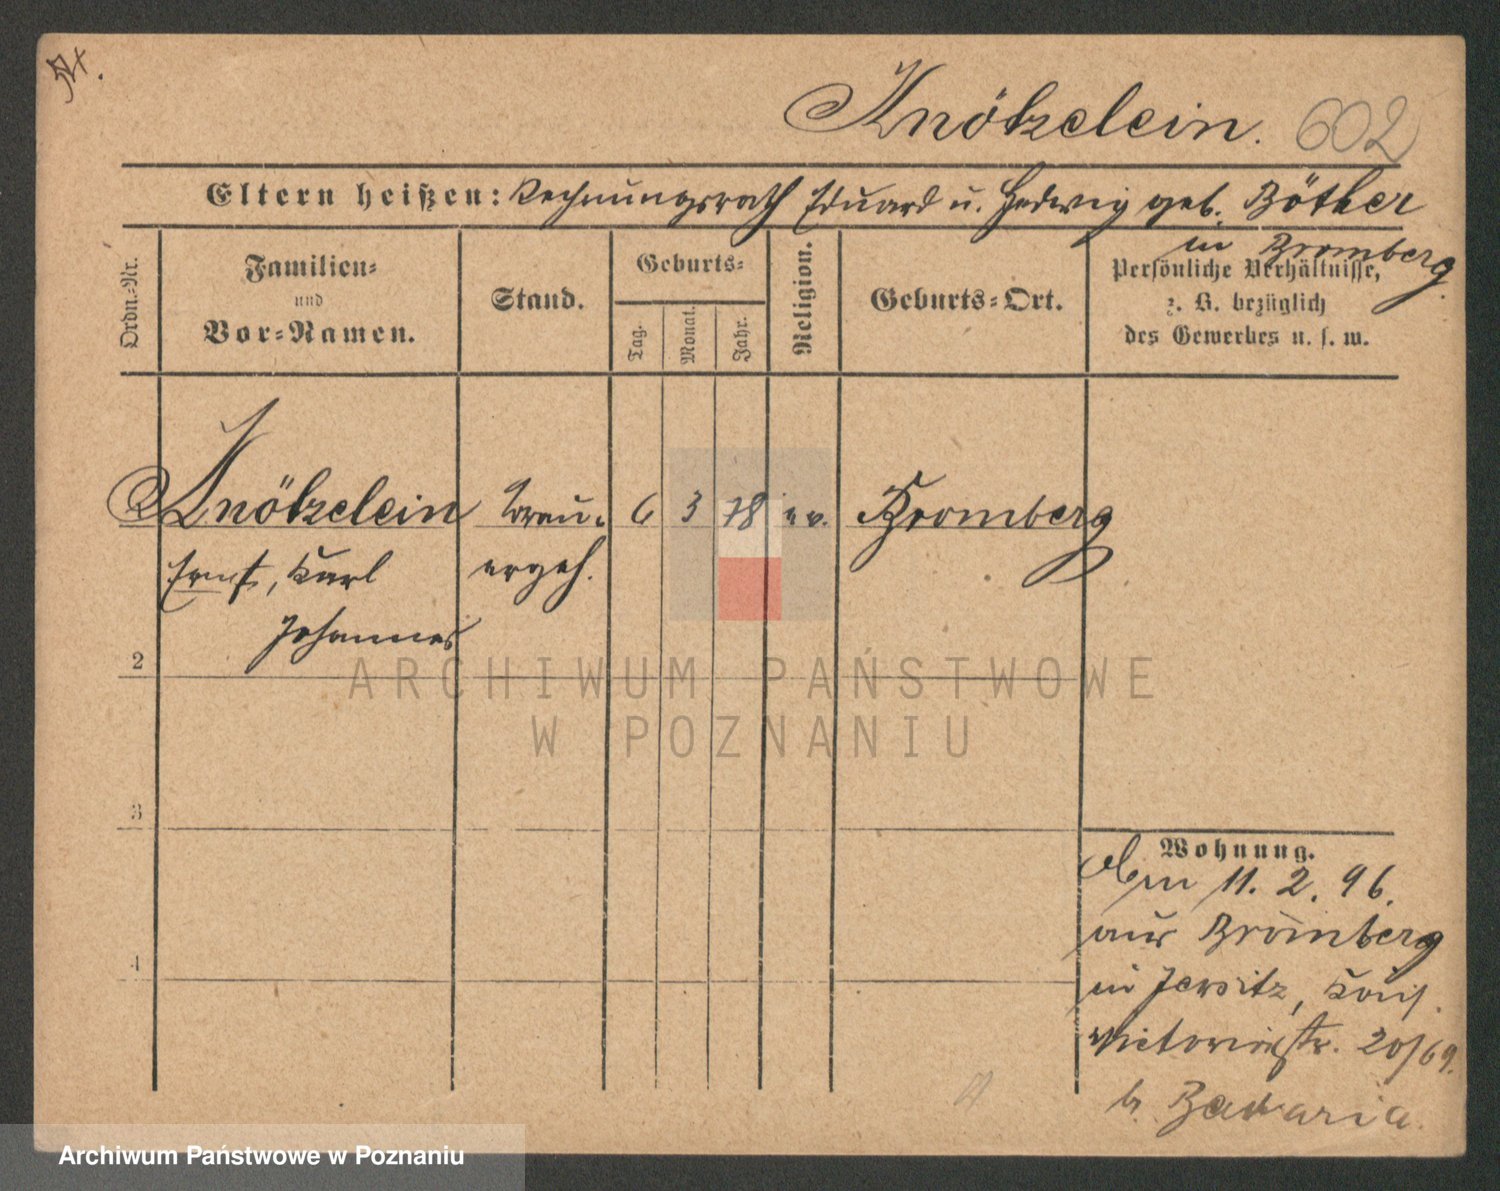 Knötzelein. 602
Eltern heißen: Rechnungsrath Eduard u. Hedwig geb. Böther
in Bromberg.
Ordn.-Nr.
Familien-
und
Vor-Namen.
Stand.
Geburts-
Tag.
Monat.
Jahr.
Religion.
Geburts-Ort.
Persönliche Verhältnisse,
z. B. bezüglich
des Gewerbes u. s. w.
Knötzelein Brau- 6 3 78 ev. Bromberg
Ernst, Karl ergeh.
Johannes
2
ARCHIWUM PAŃSTWOWE
W POZNANIU
3
4
Wohnung.
Am 11. 2. 96.
aus Bromberg
in Jersitz,
Victoriastr. 20/69.
b. Bavaria.
Archiwum Państwowe w Poznaniu